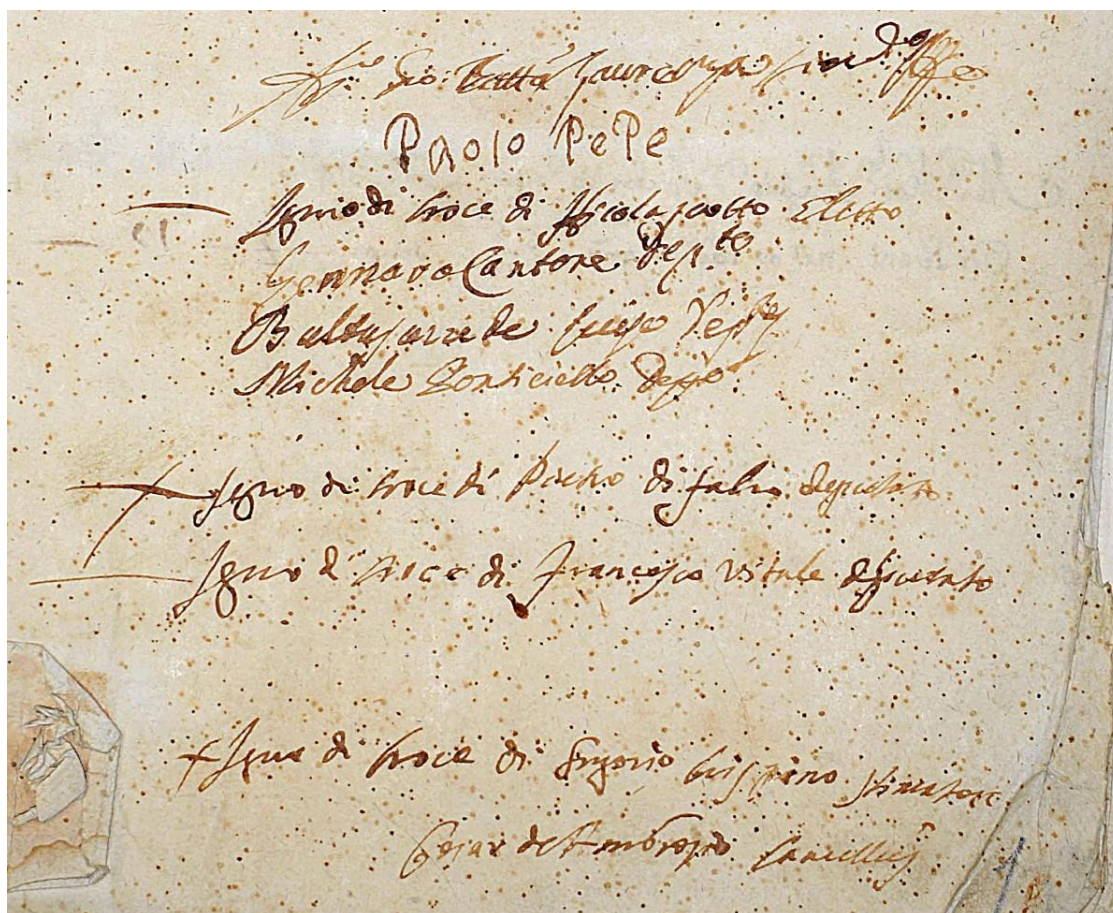 Gio: Batta
Paolo PePe
Segnio di Croce di Nicola scotto Eletto
Gennaro Cantore Depto
Baltasarre de luijo Dep
Michele Ponticiello Depto
Segno di Croce di Pietro di fabio deputato
Segno di Croce di Francesco vitale deputato
+ Segno di Croce di Crispino stimatore
Cesar de Ambrosio Cancell